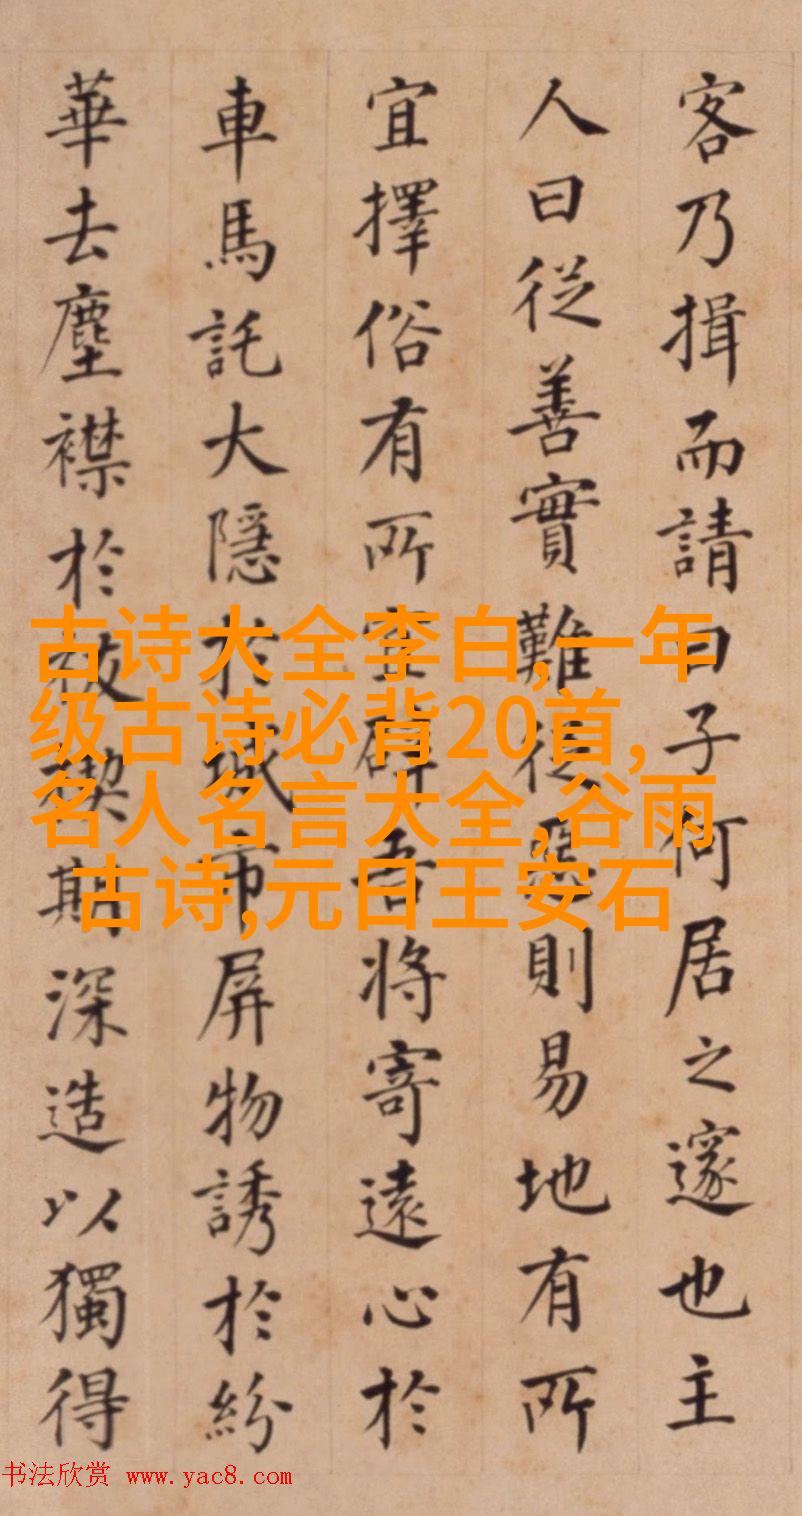 客乃揖而請曰子何居之邃也主
人曰從善實難從惡則易地有所
宜擇俗有所宜吾将寄遠心於
車馬託大隱於城市屏物誘於紛
華去塵襟於祓禊期深造以獨得
古诗大全李白,一年
级古诗必背20首,
名人名言大全,谷雨
古诗,元日王安石
书法欣赏 www.yac8.com